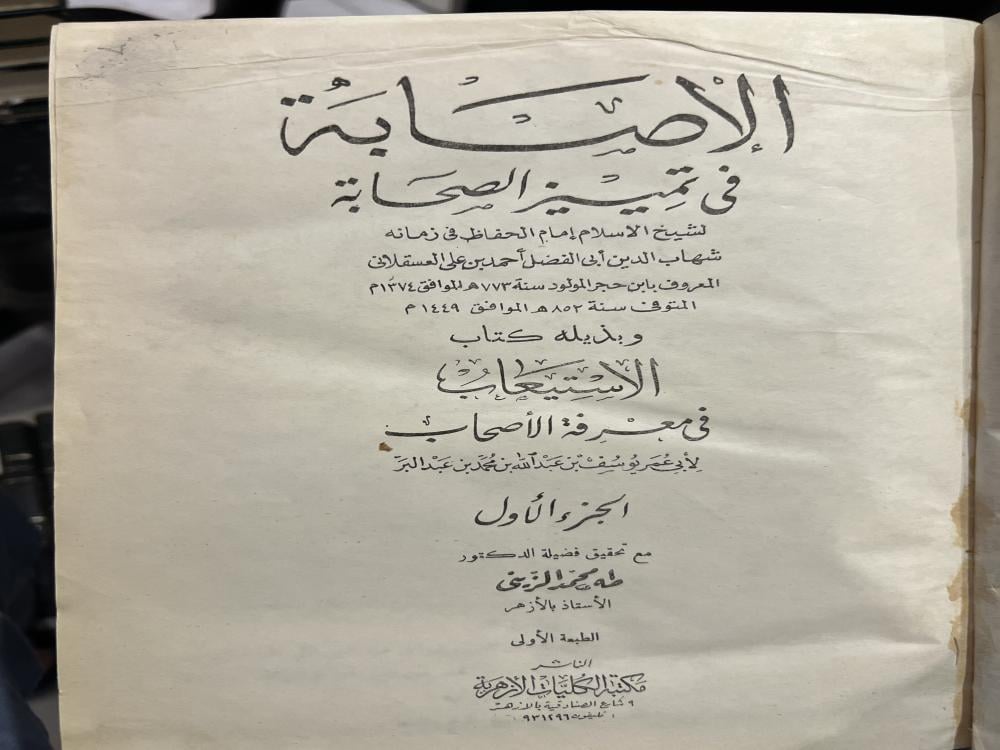 الإصابة
فى تمييز الصحابة
لشيخ الاسلام إمام الحفاظ فى زمانه
شهاب الدين أبى الفضل أحمد بن على العسقلانى
المعروف بابن حجر المولود سنة ٧٧٣ هـ الموافق ١٣٧٤ م
المتوفى سنة ٨٥٢ هـ الموافق ١٤٤٩ م
وبذيله كتاب
الاستيعاب
فى معرفة الأصحاب
لأبي عمر يوسف بن عبد الله بن محمد بن عبد البر
الجزء الأول
مع تحقيق فضيلة الدكتور
طه محمد الزينى
الأستاذ بالأزهر
الطبعة الأولى
الناشر
مكتبة الكليات الأزهرية
٩ شارع الصنادقية بالازهر
تليفون ٩٣١٢٩٦